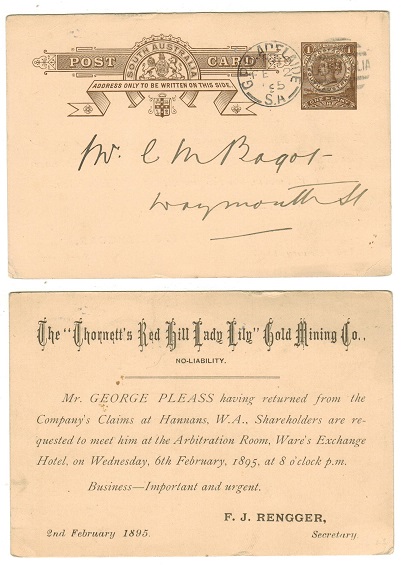 SOUTH AUSTRALIA
POST CARD
ADDRESS ONLY TO BE WRITTEN ON THIS SIDE.
G.P.O. ADELAIDE
S.A.
Mr. C M Bagot
Waymouth St
The "Thornett's Red Hill Lady Lily" Gold Mining Co.,
NO-LIABILITY.
Mr. GEORGE PLEASS having returned from the
Company's Claims at Hannans, W.A., Shareholders are re-
quested to meet him at the Arbitration Room, Ware's Exchange
Hotel, on Wednesday, 6th February, 1895, at 8 o'clock p.m.
Business—Important and urgent.
F. J. RENGGER,
2nd February 1895. Secretary.